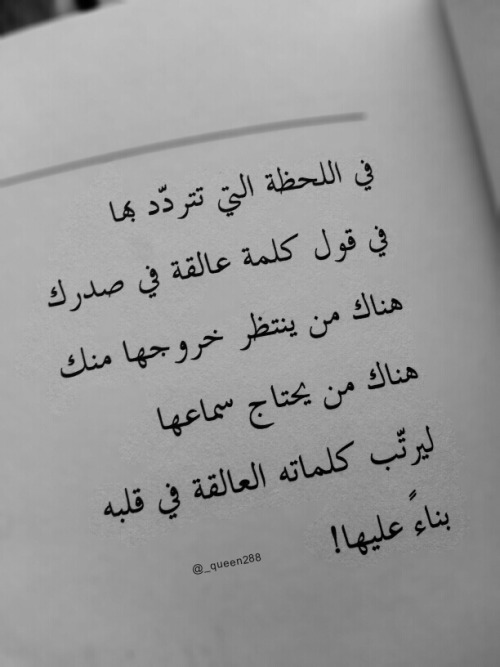 في اللحظة التي تتردّد بها
في قول كلمة عالقة في صدرك
هناك من ينتظر خروجها منك
هناك من يحتاج سماعها
ليرتّب كلماته العالقة في قلبه
بناءً عليها!
@_queen288